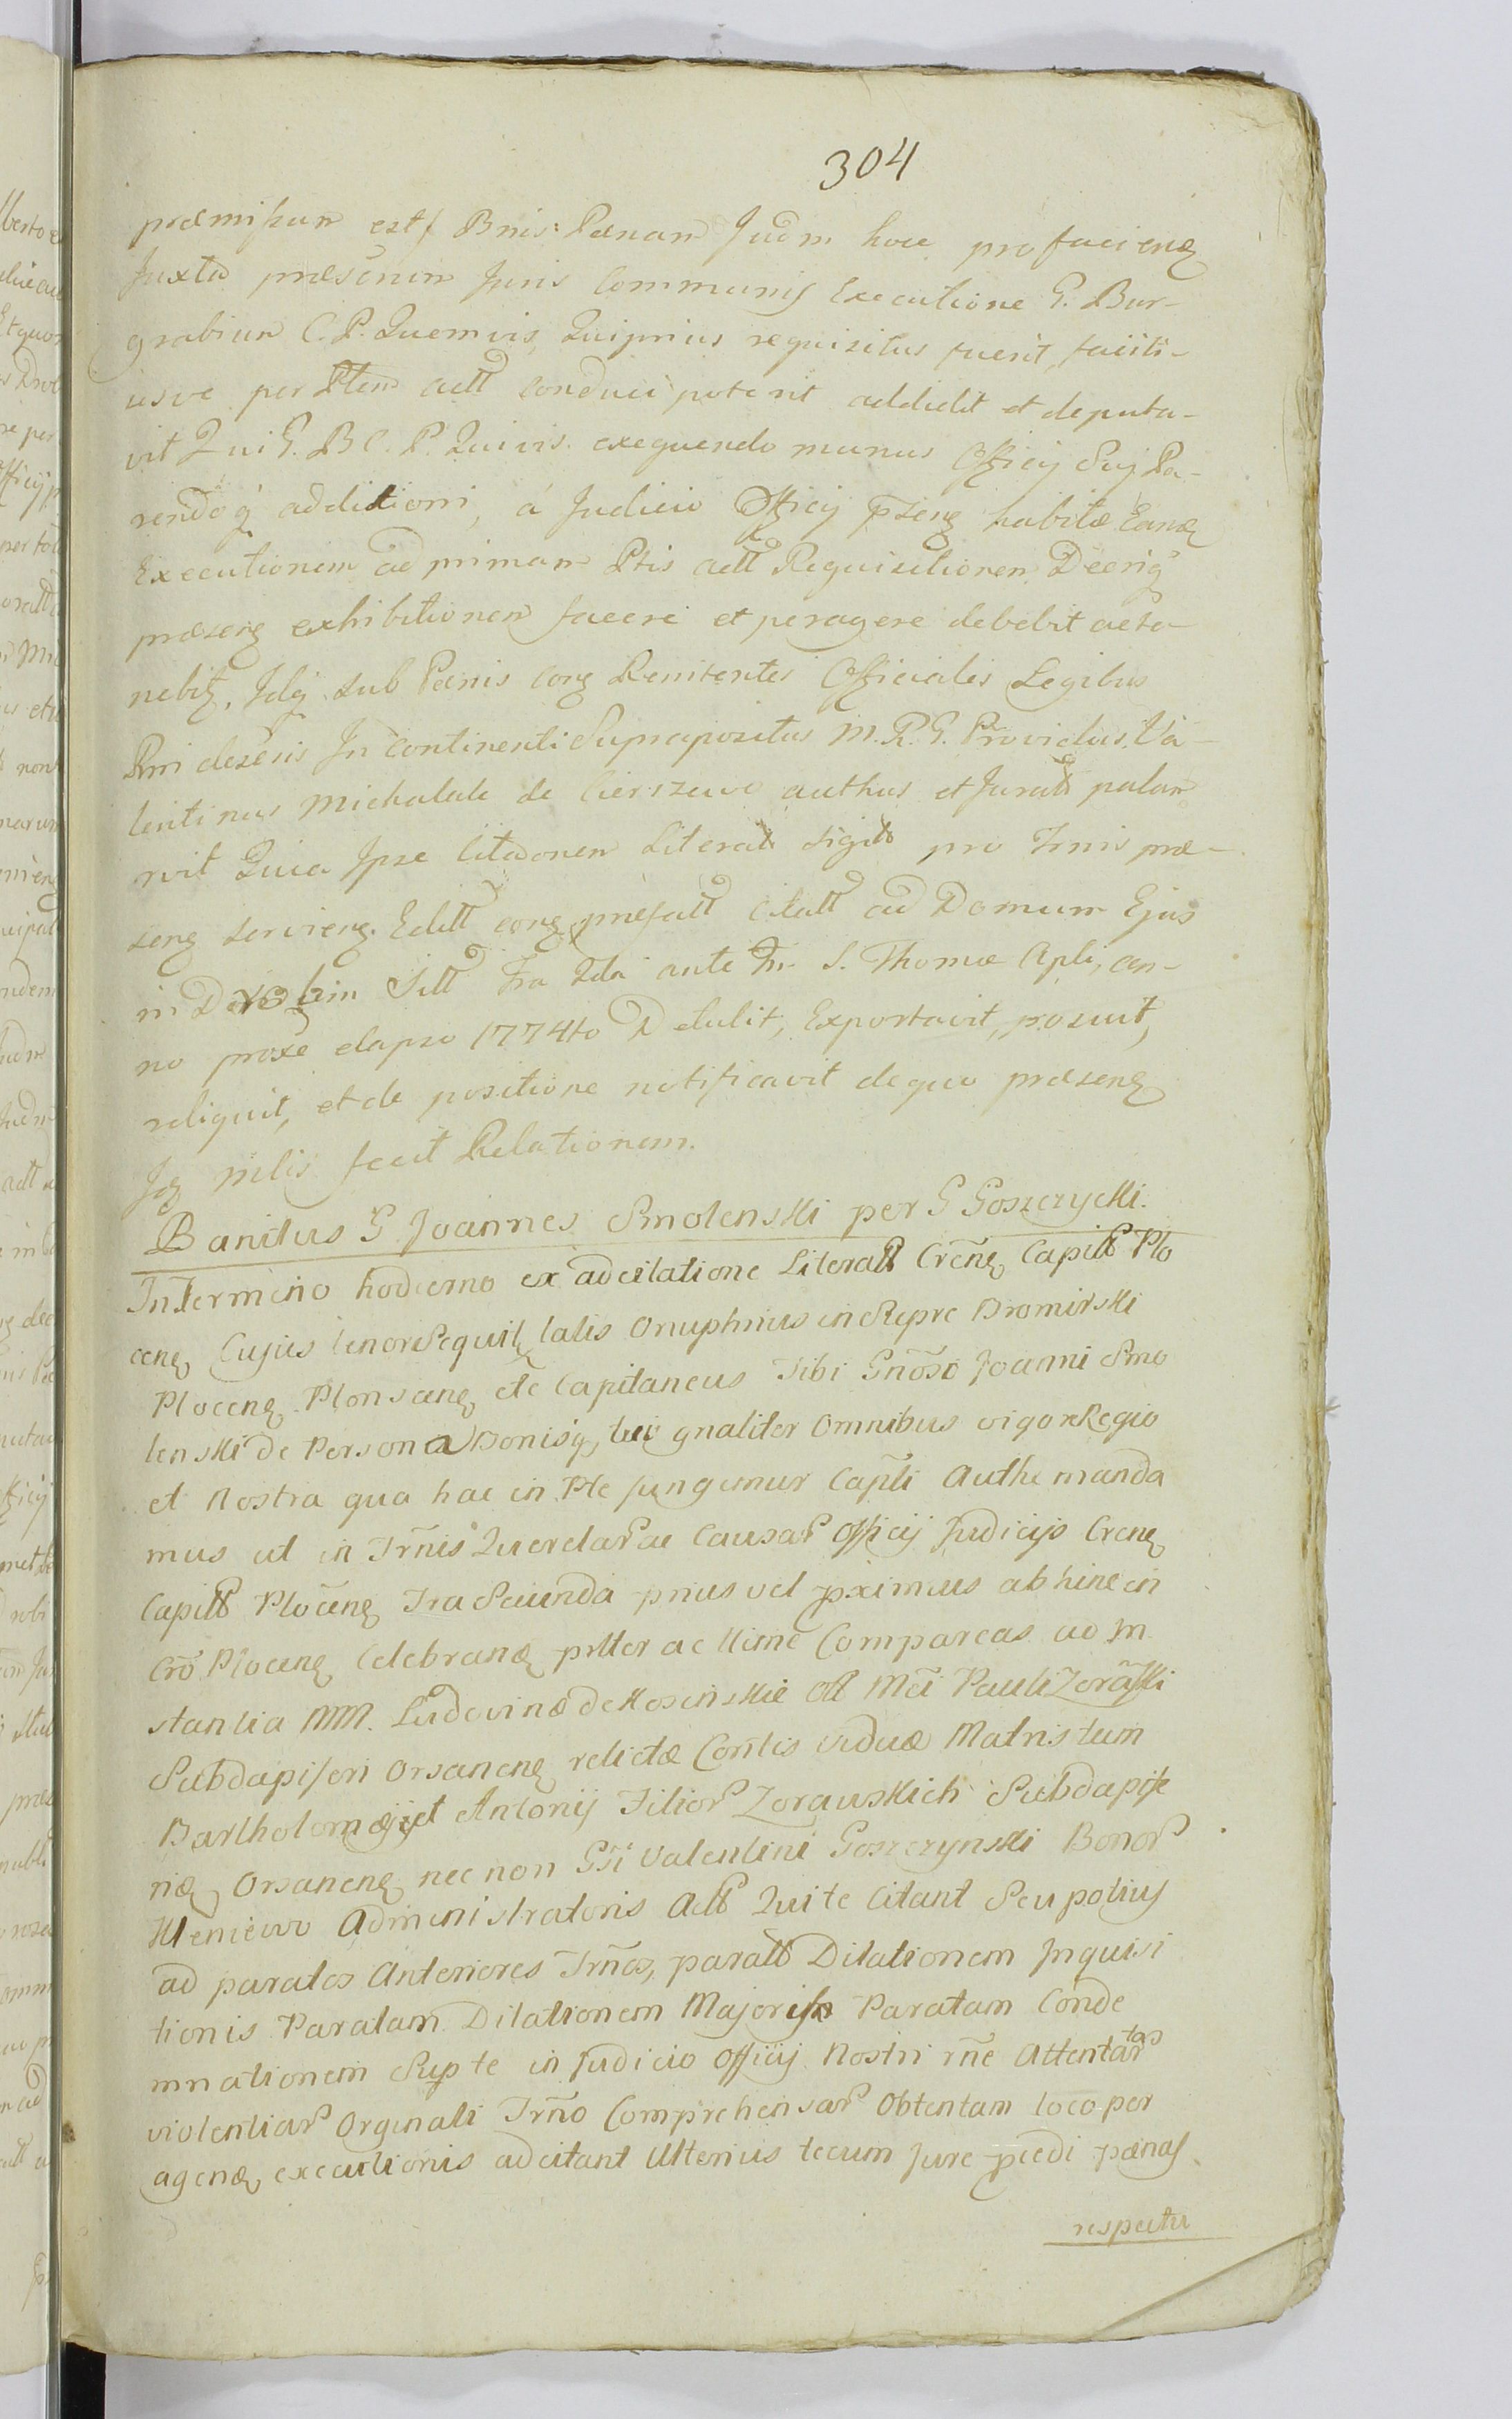 304
præmissum est Bnis: Pænam Judm hoce pro faciend
Juxta præsenem Juris Communis Executione G. Bur-
grabium C. P. Quemvis, Qui prius requisitus fuerit, facili-
usve per Ptem actt conduci poterit addidit et deputa-
vit Qui G. B C. P. Quivis exequendo munus Officij Suj Pa-
rendoq additioni, á Judicio Officij pseng habitæ Eand
Executionem ad primam Ptis actt Requisitionem Decriq
præseng exhibitionem facere et peragere debebit ac te-
nebit, Idq sub Pænis Cong Renitentes Officiales Legibus
Rni descris In continenti Suprapositus M. R. G. Providus Va-
lentinus Michalak de Cierszewo authus et Juratt palam
rvit Quia Ipse Citaōnem Literatt sigitt pro Trnis præ-
seng servieng. Editt cong præfatt Citatt ad Domum Ejus
in D Sitt Fra 2da ante Fm S. Thomæ Apli, an-
no proxe elapso 1774to Detulit, Exportavit, posuit,
reliquit, et de positione notificavit de quo præseng
Jq mlis fecit Relationem.
Banitus G Joannes Smolenski per G Goszczycki.
In Termino hodierno ex adcitatione Literatt Crēng Capitt Plo
ceng Cujus tenor Sequit talis Onuphrius in Repre Bromirski
Ploceng Plonsceng etc Capitaneus Tibi Gnōso Joanni Smo
lenski de Persona Bonisq tui gnaliter Omnibus vigore Regio
et Nostra qua hac in Pte fungimur Capīti Authe manda
mus ut in Trnīs Querelar ac Causar Officij Judicijs Creng
Capitt Ploceng Fra Secunda prius vel pximius abhinc in
Crō Ploceng Celebrand pntter ac ttime Compareas ad In
stantia MM. Ludovinæ de Kosinskie Olt Mci Pauli Zorāski
Subdapiferi Orsaneng relictæ Conītis viduæ Matris tum
Bartholomæj et Antonij Filior Zorauskich Subdapife
rid Orsaneng nec non Gsi Valentini Goszczynski Bonor
Kleniewo Administratoris Actt Qui te Citant Seu potius
ad paratos Anteriores Trnōs, paratt Dilationem Inquisi
tionis Paratam Dilationem Majoris Paratam Conde
mnationem Sup te in Judicio Officij Nostri rñe Attentar tas
violentiar Orginali Trnō Comprehensar Obtentam loco per
agend executionis adcitant Ulterius tecum Jure pcedi pænas
respectu